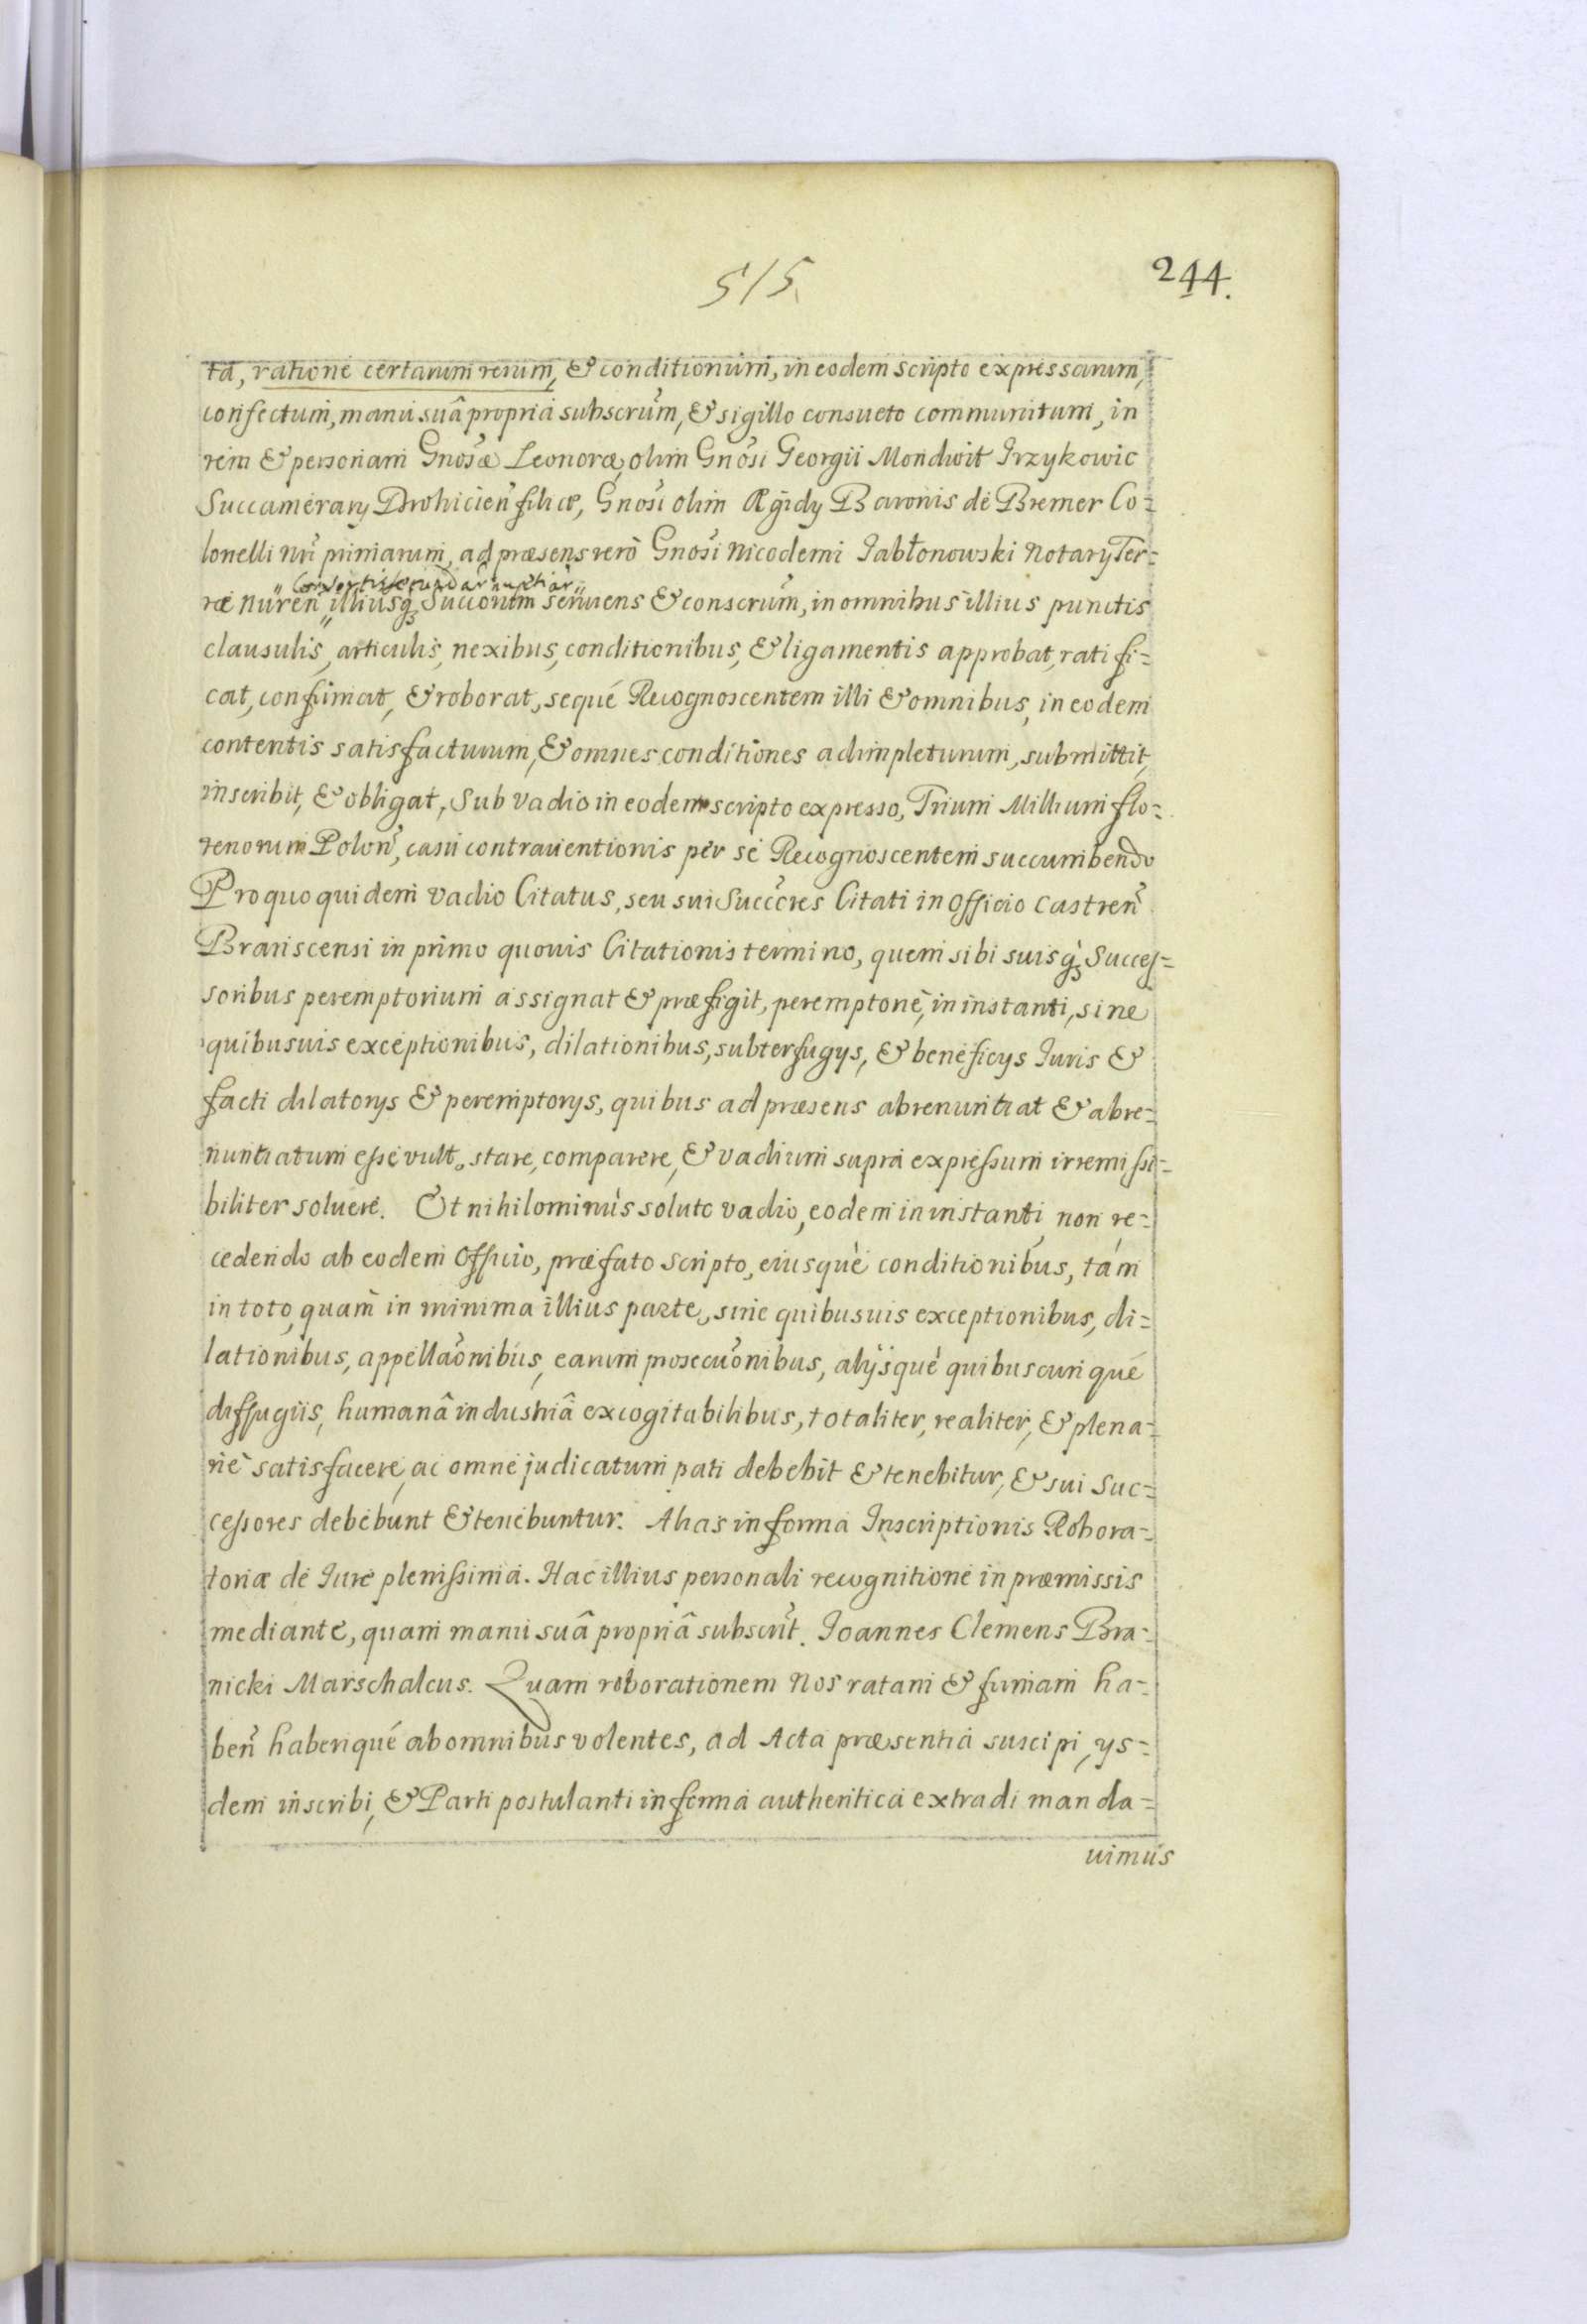 515
244.
ta, ratione certarum rerum, & conditionum, in eodem scripto expressarum,
confectum, manu suâ propria subscrũm, & sigillo consueto communitum, in
rem & personam Gnosæ Leonoræ, olim Gnosi Georgii Mondwit Irzykowic
Succamerarÿ Drohicien̉ filiæ, Gnosi olim Ægidÿ Baronis de Bremer Co=
lonelli nri primarum, ad præsens verò Gnosi Nicodemi Jabłonowski Notarÿ Ter=
" Consortis secundar nuptiar "
ræ Nuren̉ " illiusq̃ Succorum seruiens & conscrũm, in omnibus illius punctis
clausulis, articulis, nexibus, conditionibus, & ligamentis approbat, ratifi=
cat, confirmat, & roborat, seque Recognoscentem illi & omnibus, in eodem
contentis satisfacturum, & omnes conditiones adimpleturum, submittit,
inscribit, & obligat, Sub vadio in eodem scripto expresso, Trium Millium flo=
renorum Polon̉, casu contrauentionis per se Recognoscentem succumbendo
Pro quo quidem vadio Citatus, seu sui Succres Citati in Officio Castren̉
Brańscensi in primo quouis Citationis termino, quem sibi suisq̃ Succes=
soribus peremptorium assignat & præfigit, peremptoriè, in instanti, sine
quibusuis exceptionibus, dilationibus, subterfugÿs, & beneficÿs Iuris &
facti dilatorÿs & peremptorÿs, quibus ad præsens abrenuntiat & abre=
nuntiatum esse vult, stare, comparere, & vadium supra expressum irremissi=
biliter soluere. Et nihilominùs soluto vadio, eodem in instanti, non re=
cedendo ab eodem Officio, præfato scripto, eiusquè conditionibus, tàm
in toto, quàm in minima illius parte, sine quibusuis exceptionibus, di=
lationibus, appellaõnibus, earum prosecuõnibus, alÿsquè quibuscunque
diffugiis, humanâ industriâ excogitabilibus, totaliter, realiter, & plena=
riè satisfacere, ac omne judicatum pati debebit & tenebitur, & sui Suc=
cessores debebunt & tenebuntur. Alias in forma Inscriptionis Robora=
toriæ de Iure plenissima. Hac illius personali recognitione in præmissis
mediante, quam manu suâ propriâ subscrit. Joannes Clemens Bra=
nicki Marschalcus. Quam roborationem Nos ratam & firmam ha=
ben̉ haberique ab omnibus volentes, ad Acta præsentia suscipi, ÿs=
dem inscribi, & Parti postulanti in forma authentica extradi manda=
uimus